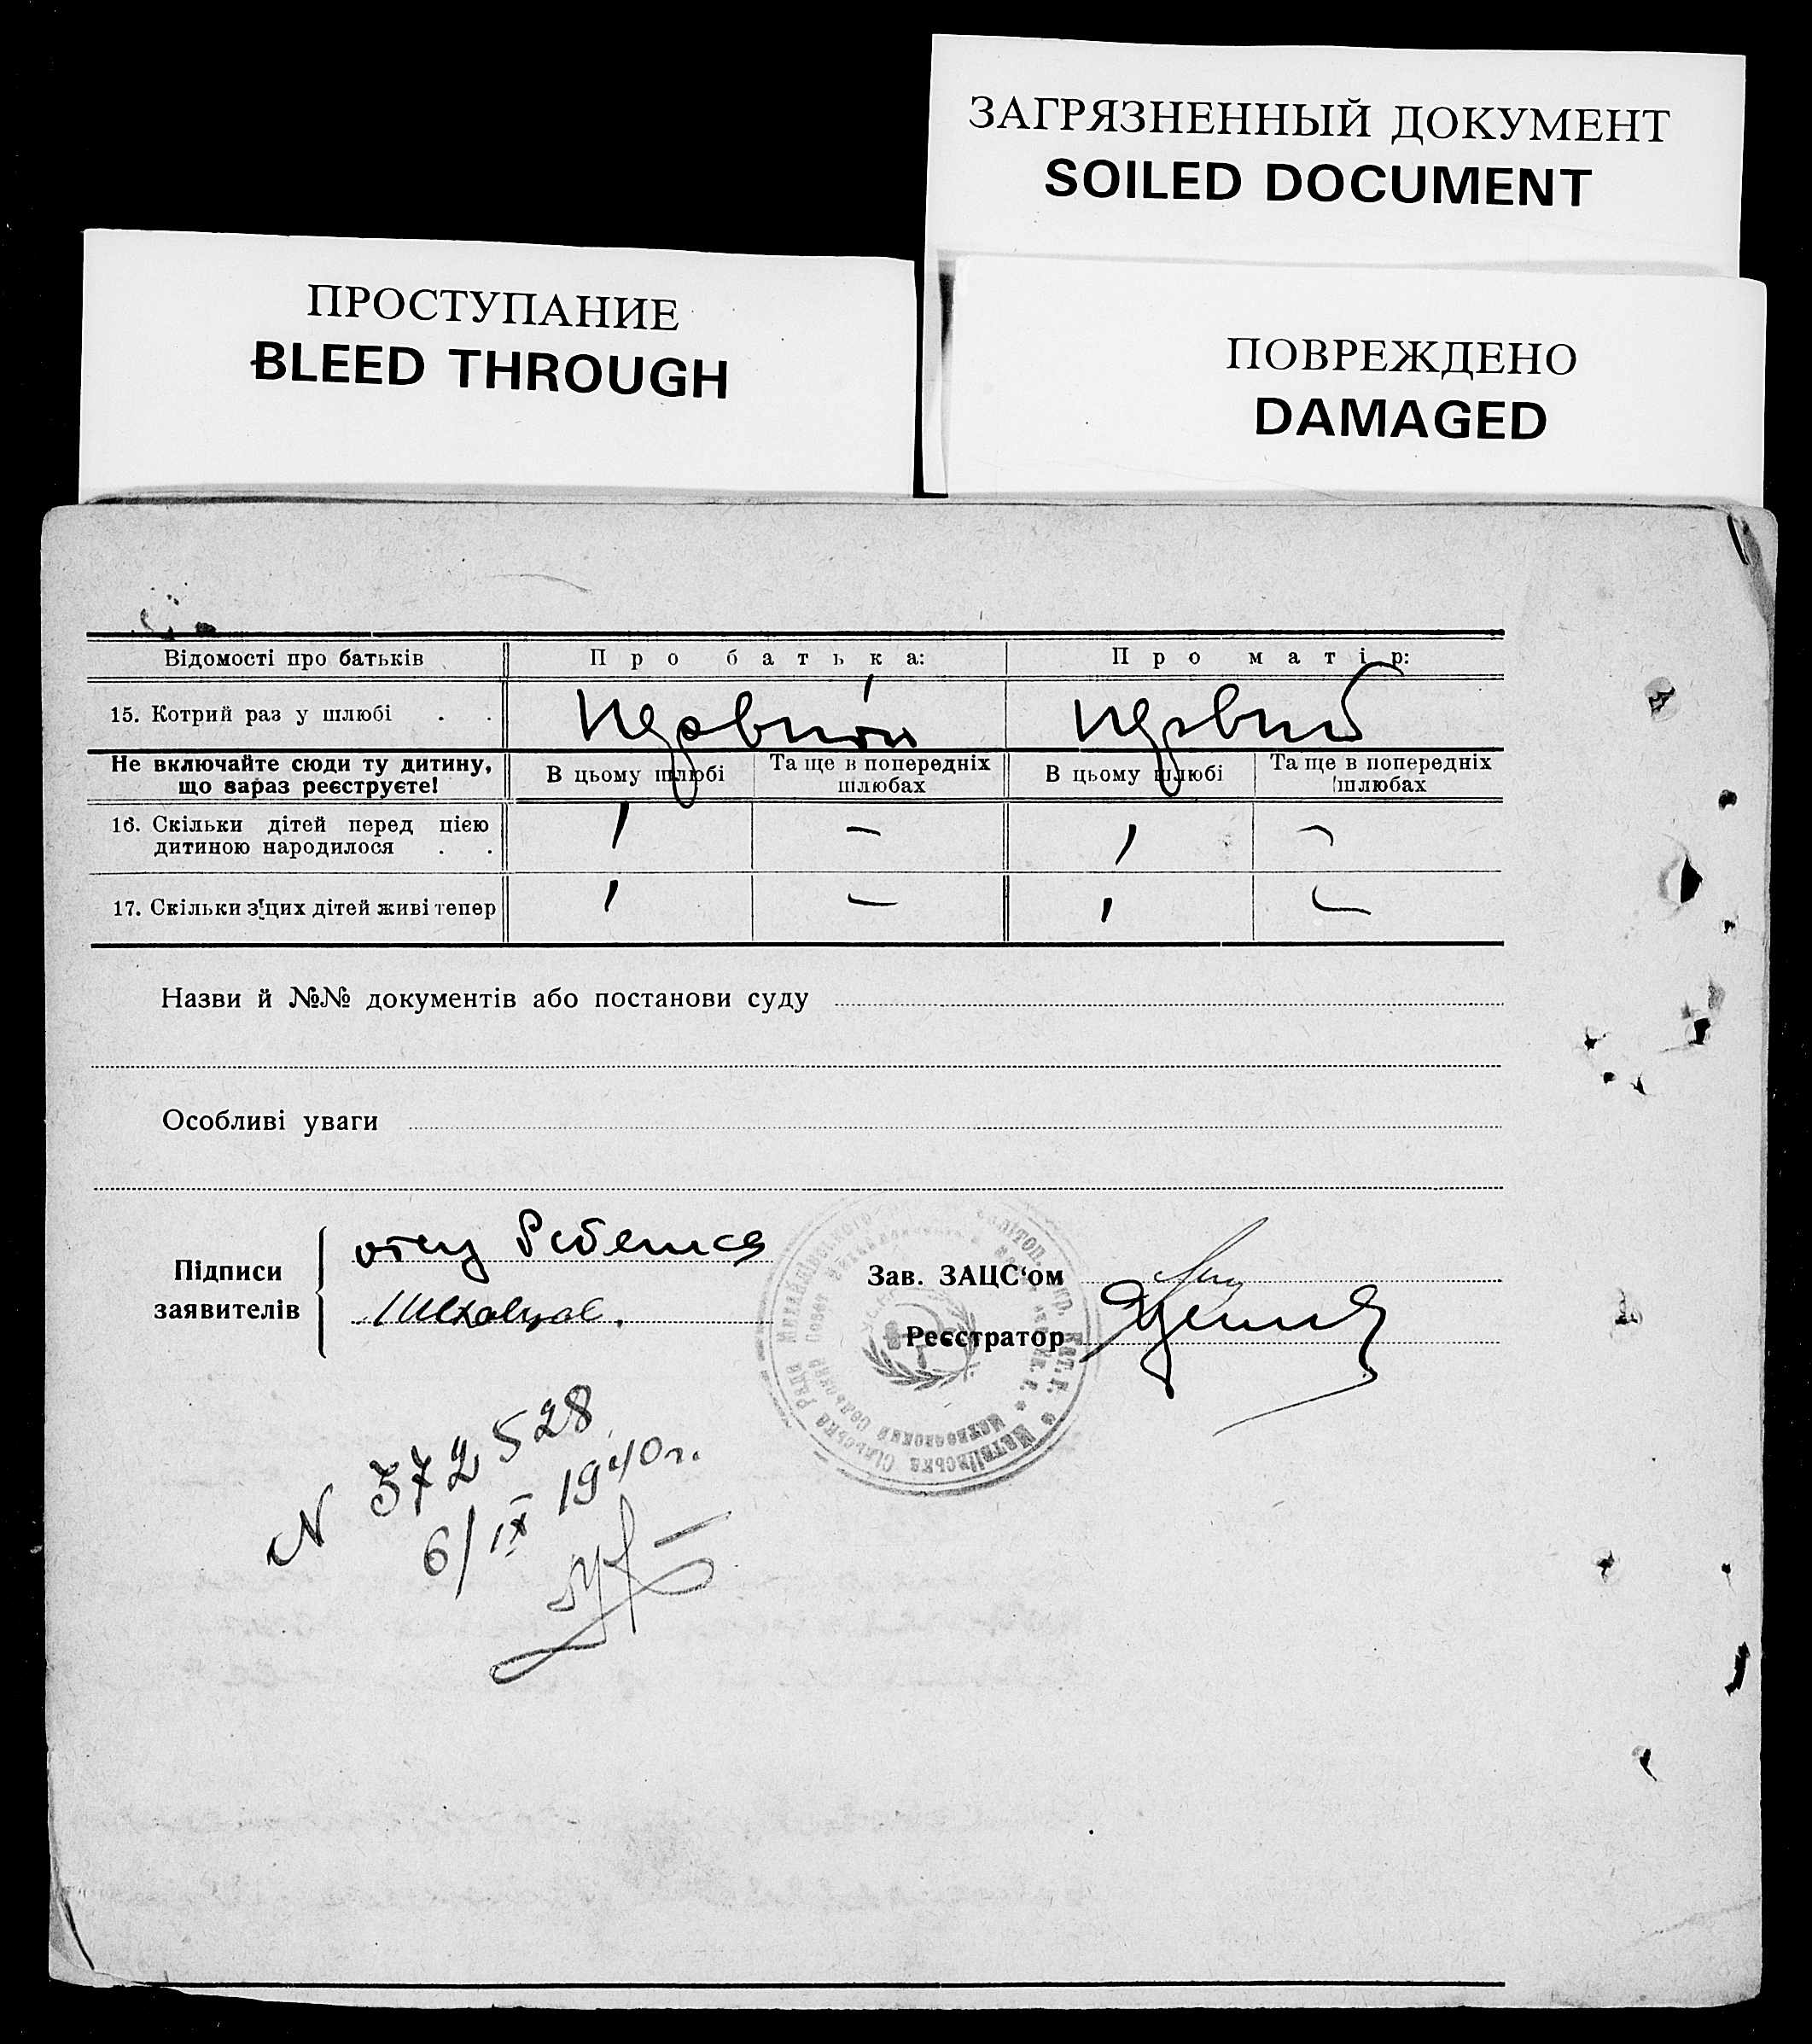 ЗАГРЯЗНЕННЫЙ ДОКУМЕНТ
SOILED DOCUMENT
ПРОСТУПАНИЕ
BLEED THROUGH
ПОВРЕЖДЕНО
DAMAGED
Відомості про батьків Про батька: Про матір:
15. Котрий раз у шлюбі . . первый первый
Не включайте сюди ту дитину, що зараз реєструєте! В цьому шлюбі Та ще в попередніх шлюбах В цьому шлюбі Та ще в попередніх шлюбах
16. Скільки дітей перед цією дитиною народилося . . 1 — 1 —
17. Скільки з цих дітей живі тепер 1 — 1 —
Назви й №№ документів або постанови суду
Особливі уваги
Підписи заявителів
отец Ребенка
Шеховцов.
Зав. ЗАЦС'ом
Реєстратор
N 372528
6/IX 1940 г.